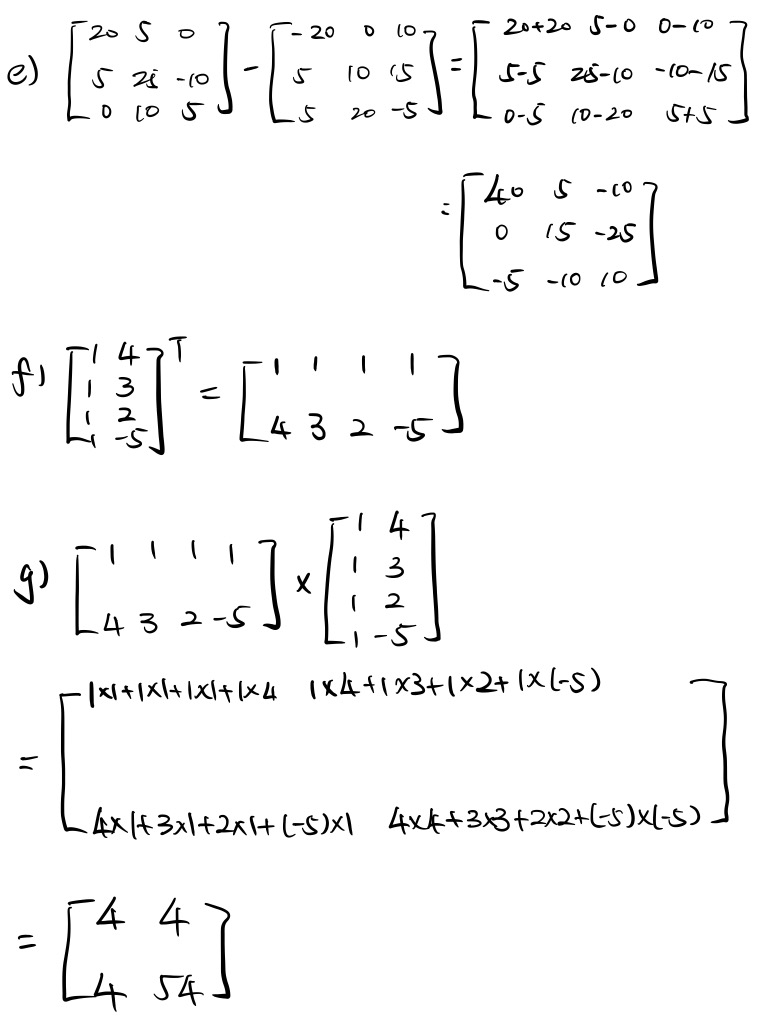 e) [20 5 0; 5 25 -10; 0 10 5] - [-20 0 10; 5 10 15; 5 20 -5] = [20+20 5-0 0-10; 5-5 25-10 -10-15; 0-5 10-20 5+5]
= [40 5 -10; 0 15 -25; -5 -10 10]
f) [1 4; 1 3; 1 2; 1 -5]^T = [1 1 1 1; 4 3 2 -5]
g) [1 1 1 1; 4 3 2 -5] × [1 4; 1 3; 1 2; 1 -5]
= [1×1+1×1+1×1+1×4 1×4+1×3+1×2+1×(-5); 4×1+3×1+2×1+(-5)×1 4×4+3×3+2×2+(-5)×(-5)]
= [4 4; 4 54]